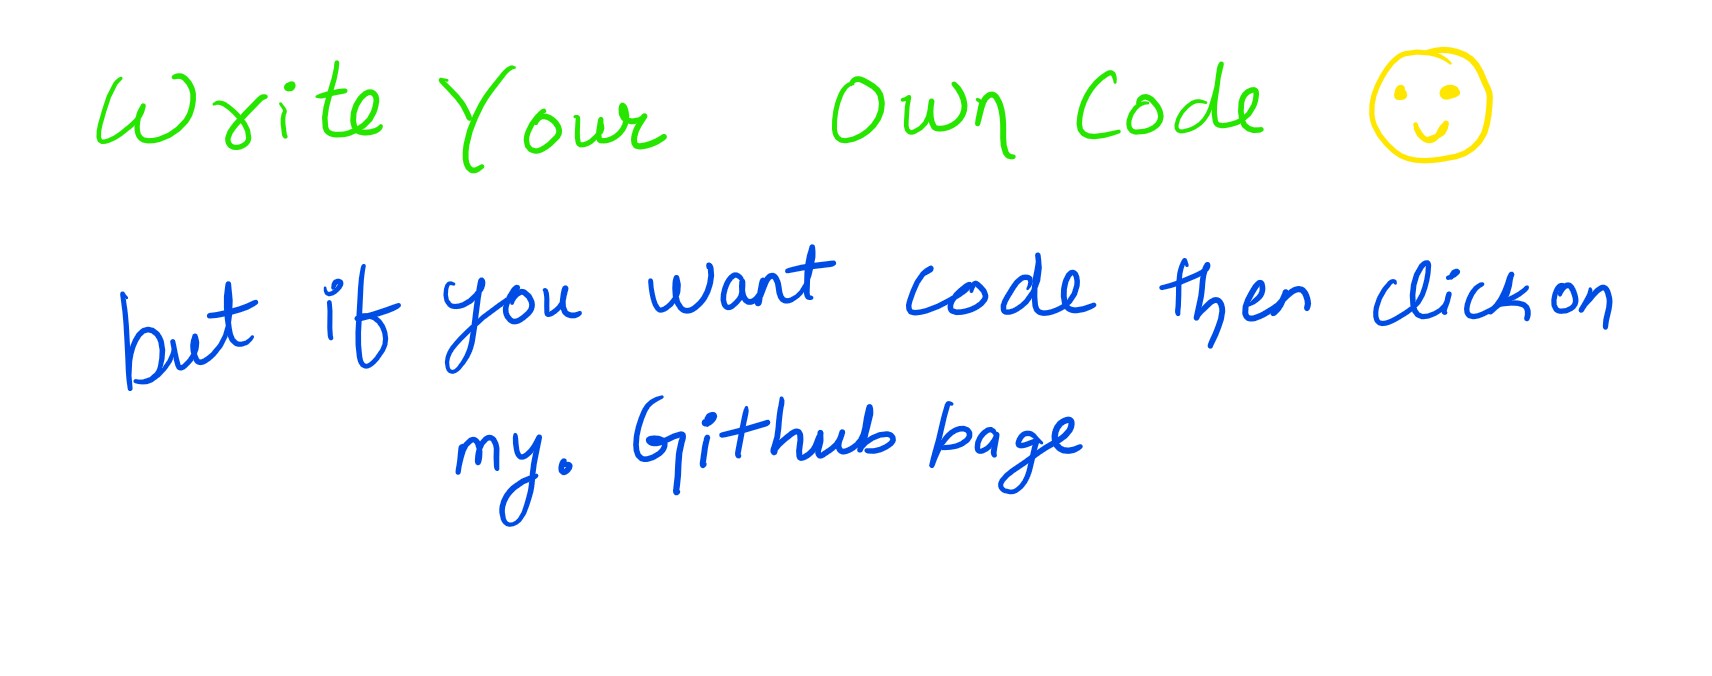 Write Your Own Code
but if you want code then click on
my. Github page